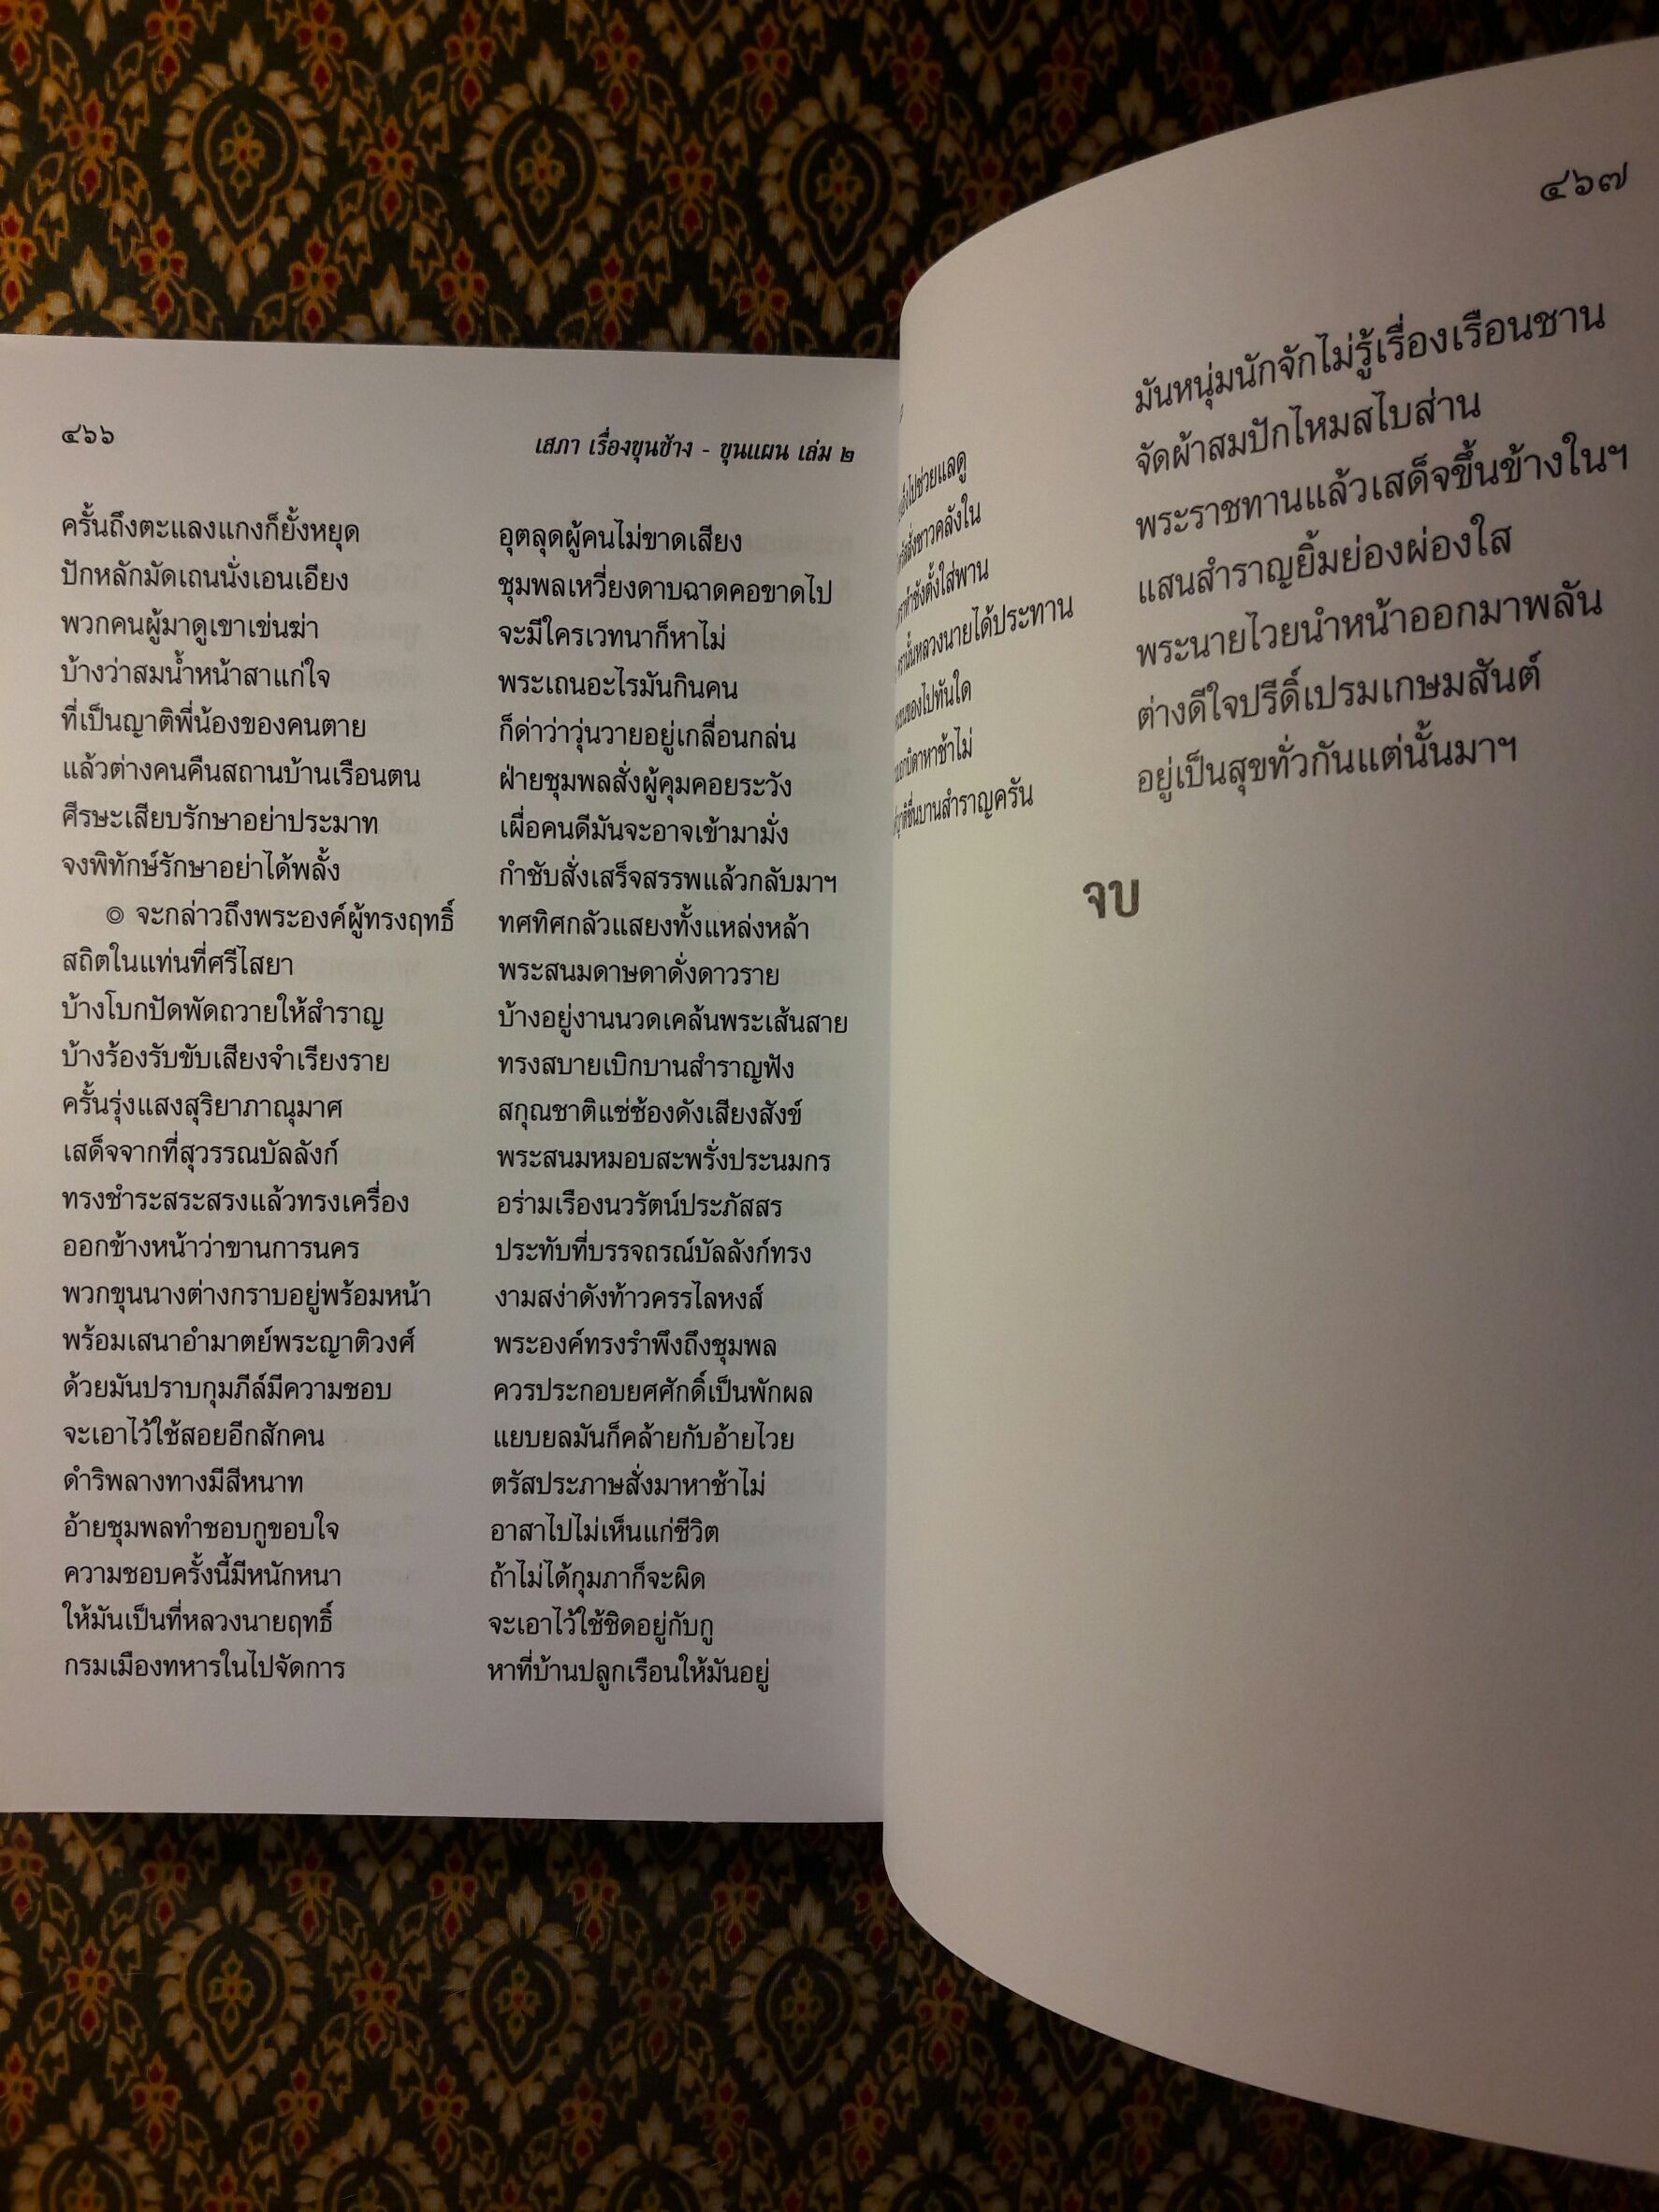 ๔๖๖ เสภา เรื่องขุนช้าง - ขุนแผน เล่ม ๒
ครั้นถึงตะแลงแกงก็ยั้งหยุด อุตลุดผู้คนไม่ขาดเสียง
ปักหลักมัดเถนนั่งเอนเอียง ชุมพลเหวี่ยงดาบฉาดคอขาดไป
พวกคนผู้มาดูเขาเข่นฆ่า จะมีใครเวทนาก็หาไม่
บ้างว่าสมน้ำหน้าสาแก่ใจ พระเถนอะไรมันกินคน
ที่เป็นญาติพี่น้องของคนตาย ก็ด่าว่าวุ่นวายอยู่เกลื่อนกล่น
แล้วต่างคนคืนสถานบ้านเรือนตน ฝ่ายชุมพลสั่งผู้คุมคอยระวัง
ศีรษะเสียบรักษาอย่าประมาท เผื่อคนดีมันจะอาจเข้ามามั่ง
จงพิทักษ์รักษาอย่าได้พลั้ง กำชับสั่งเสร็จสรรพแล้วกลับมาฯ
๏ จะกล่าวถึงพระองค์ผู้ทรงฤทธิ์ ทศทิศกลัวแสยงทั้งแหล่งหล้า
สถิตในแท่นที่ศรีไสยา พระสนมดาษดาดั่งดาวราย
บ้างโบกปัดพัดถวายให้สำราญ บ้างอยู่งานนวดเคล้นพระเส้นสาย
บ้างร้องรับขับเสียงจำเรียงราย ทรงสบายเบิกบานสำราญฟัง
ครั้นรุ่งแสงสุริยาภาณุมาศ สกุณชาติแซ่ซ้องดังเสียงสังข์
เสด็จจากที่สุวรรณบัลลังก์ พระสนมหมอบสะพรั่งประนมกร
ทรงชำระสระสรงแล้วทรงเครื่อง อร่ามเรืองนวรัตน์ประภัสสร
ออกข้างหน้าว่าขานการนคร ประทับที่บรรจถรณ์บัลลังก์ทรง
พวกขุนนางต่างกราบอยู่พร้อมหน้า งามสง่าดังท้าวครรไลหงส์
พร้อมเสนาอำมาตย์พระญาติวงศ์ พระองค์ทรงรำพึงถึงชุมพล
ด้วยมันปราบกุมภีล์มีความชอบ ควรประกอบยศศักดิ์เป็นพักผล
จะเอาไว้ใช้สอยอีกสักคน แยบยลมันก็คล้ายกับอ้ายไวย
ดำริพลางทางมีสีหนาท ตรัสประภาษสั่งมาหาช้าไม่
อ้ายชุมพลทำชอบกูขอบใจ อาสาไปไม่เห็นแก่ชีวิต
ความชอบครั้งนี้มีหนักหนา ถ้าไม่ได้กุมภาก็จะผิด
ให้มันเป็นที่หลวงนายฤทธิ์ จะเอาไว้ใช้ชิดอยู่กับกู
กรมเมืองทหารในไปจัดการ หาที่บ้านปลูกเรือนให้มันอยู่
๔๖๗
ไปช่วยแลดู มันหนุ่มนักจักไม่รู้เรื่องเรือนชาน
สั่งชาวคลังใน จัดผ้าสมปักไหมสไบส่าน
ชั่งตั้งใส่พาน พระราชทานแล้วเสด็จขึ้นข้างในฯ
หลวงนายได้ประทาน แสนสำราญยิ้มย่องผ่องใส
ของไปทันใด พระนายไวยนำหน้าออกมาพลัน
หาช้าไม่ ต่างดีใจปรีดิ์เปรมเกษมสันต์
ชื่นบานสำราญครัน อยู่เป็นสุขทั่วกันแต่นั้นมาฯ
จบ